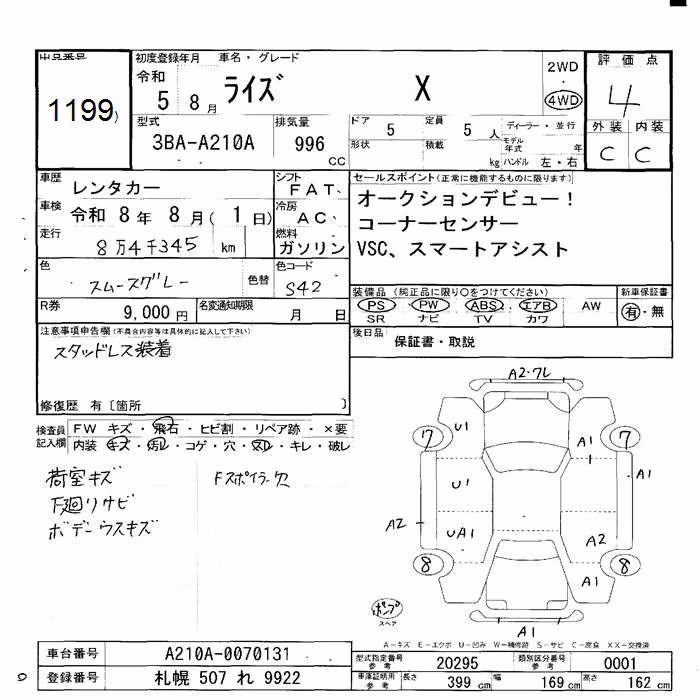 出品番号
1199
初度登録年月 車名・グレード
令和 5年 8月 ライズ X
2WD
・
4WD
評価点
4
外装 内装
C C
型式 3BA-A210A
排気量 996 CC
ドア 5 定員 5人 ディーラー・並行
形状 積載 kg モデル年式 年
ハンドル 左・右
車歴 レンタカー
シフト FAT、
車検 令和 8年 8月( 1日)
冷房 AC、
走行 8万4千345 km
燃料 ガソリン
色 スムースグレー 色替
色コード S42
R券 9,000円 名変通知期限 月 日
セールスポイント(正常に機能するものに限ります)
オークションデビュー!
コーナーセンサー
VSC、スマートアシスト
装備品(純正品に限り○をつけてください) 新車保証書
PS PW ABS エアB AW 有・無
SR ナビ TV カワ
後日品 保証書・取説
注意事項申告欄(不具合内容等は具体的に記入して下さい)
スタッドレス装着
修復歴 有〔箇所 〕
検査員記入欄 FW キズ・飛石・ヒビ割・リペア跡・×要
内装 キズ・汚レ・コゲ・穴・ヌレ・キレ・破レ
荷室キズ Fスポイラー欠
下廻りサビ
ボデーウスキズ
A2・ワレ
7 U1 A1 7
U1 A1
A2 UA1 A2
8 A1 8
ポンプ
スペア
A1
A-キズ E-エクボ U-凹み W-補修跡 S-サビ C-腐食 XX-交換済
車台番号 A210A-0070131
登録番号 札幌 507 れ 9922
型式指定番号 参考 20295 類別区分番号 参考 0001
車庫証明用 参考 長さ 399 cm 幅 169 cm 高さ 162 cm